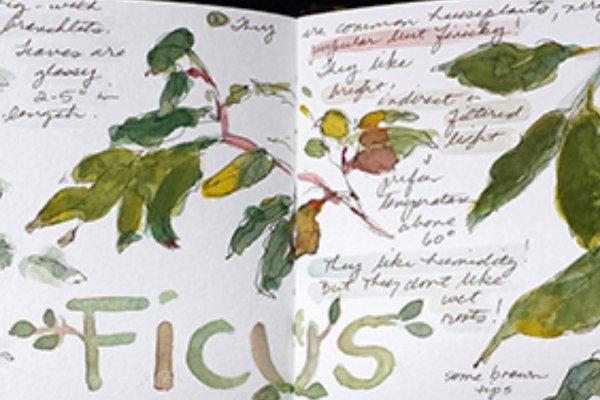 with
branchlets.
Leaves are
glossy
2-5" in
length.
They
are common houseplants, very
popular but finicky!
They like
bright,
indirect +
filtered
light
prefer
temperatures
above
60°
They like humidity!
But they don't like
wet
roots!
Ficus
some brown
tips